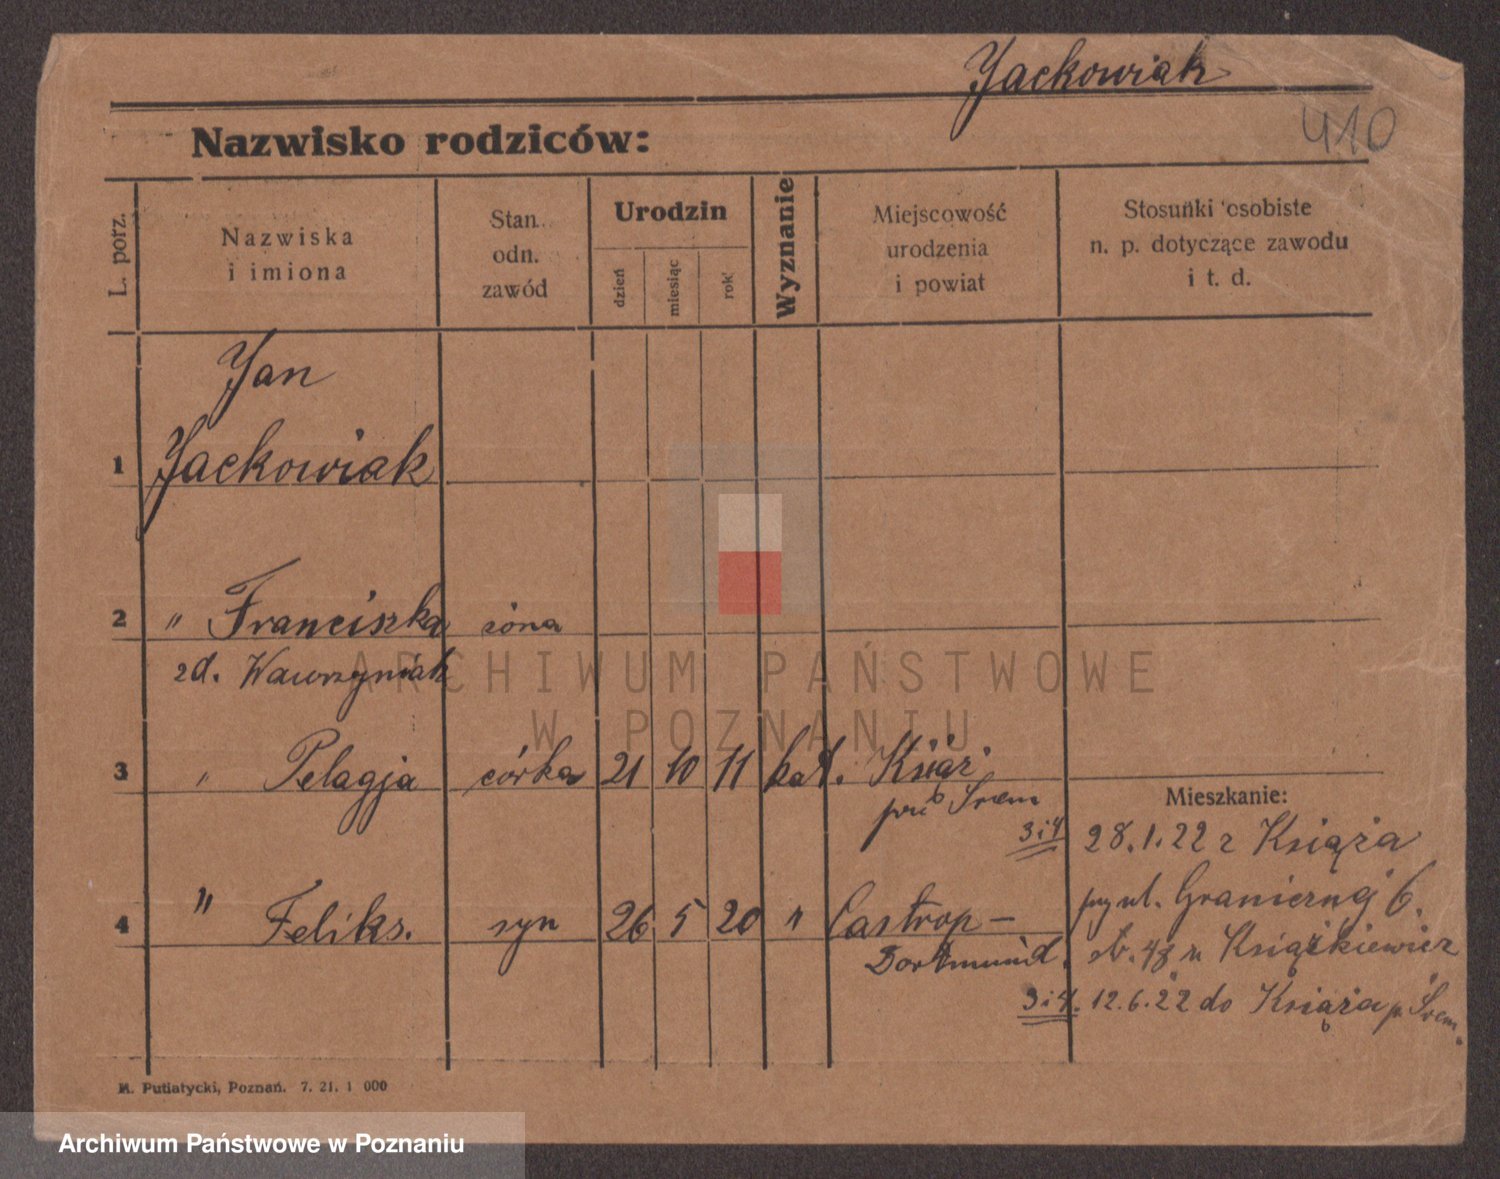 Jackowiak
410
Nazwisko rodziców:
L. porz.
Nazwiska
i imiona
Stan.
odn.
zawód
Urodzin
dzień
miesiąc
rok
Wyznanie
Miejscowość
urodzenia
i powiat
Stosunki osobiste
n. p. dotyczące zawodu
i t. d.
Jan
1 Jackowiak
2 " Franciszka żona
zd. Wawrzyniak
3 " Pelagja córka 21 10 11 kat. Książ
Śrem
Mieszkanie:
3 i 4 28.1.22 z Książa
przy ul. Granicznej 6.
4 " Feliks. syn 26 5 20 " Castrop-
Dortmund. st. 48 u Książkiewicz
3 i 4. 12.6.22 do Książa p. Śrem.
M. Putiatycki, Poznań. 7. 21. 1 000
ARCHIWUM PAŃSTWOWE
W POZNANIU
Archiwum Państwowe w Poznaniu